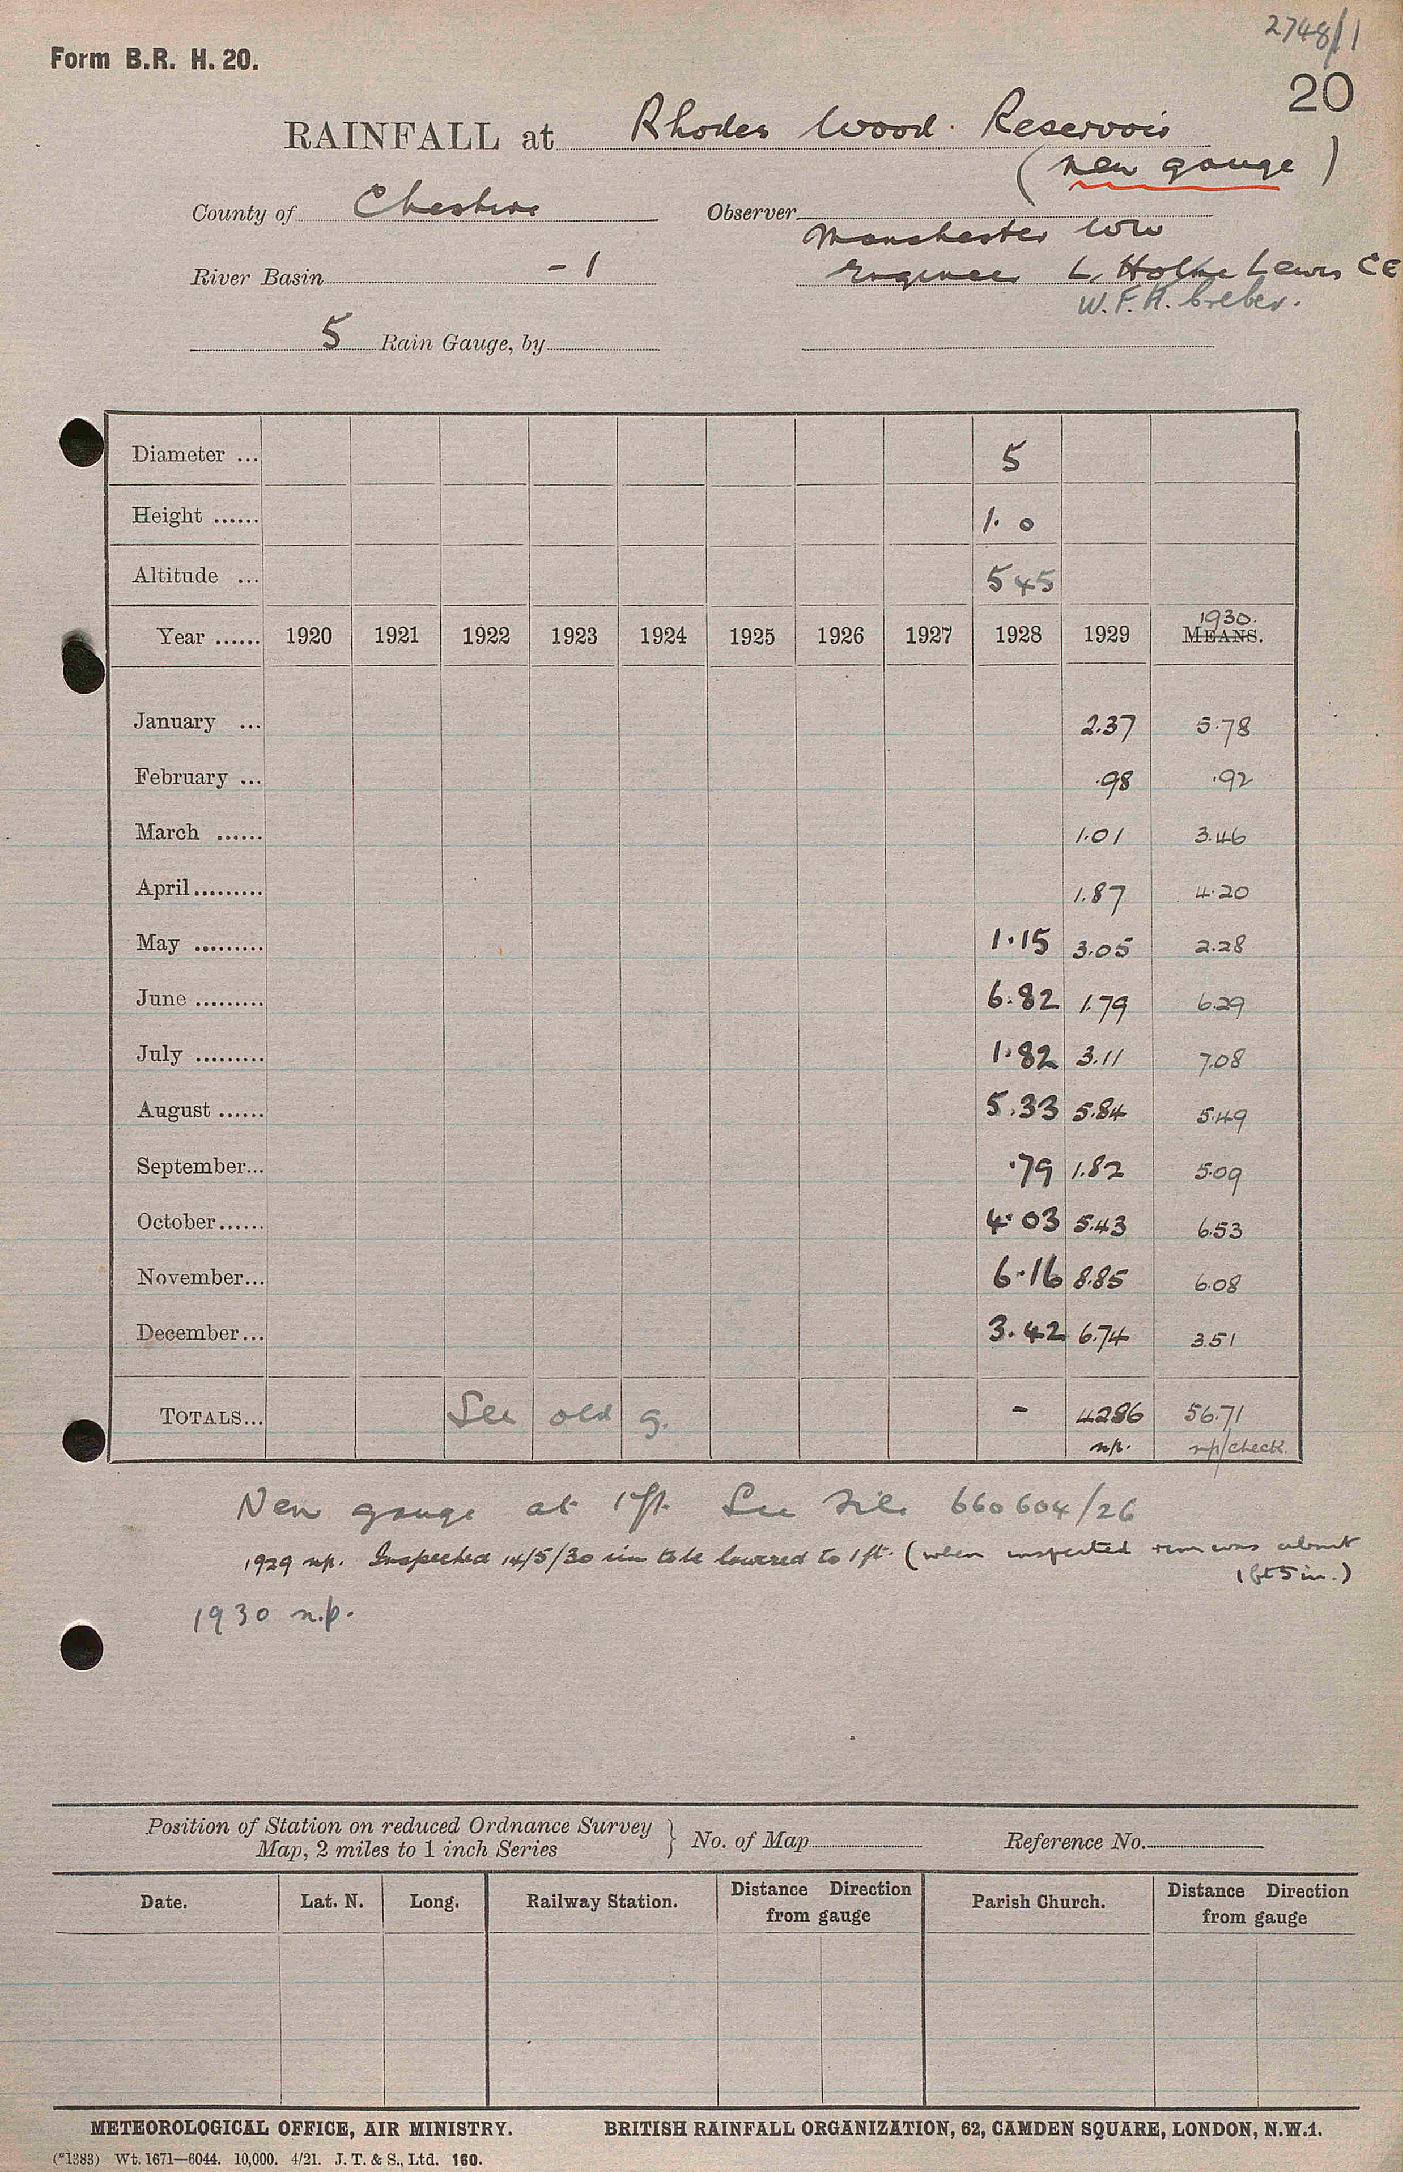 2748/1
Form B.R. H. 20.
20
RAINFALL at Rhodes Wood Reservoir
(new gauge)
County of Cheshire Observer
Manchester WW
River Basin -1 Engineer L. Holme Lewis CE
W.F.H. Creber.
5 Rain Gauge, by
Diameter ... 5
Height ...... 1. 0
Altitude ... 545
1930.
Year ...... 1920 1921 1922 1923 1924 1925 1926 1927 1928 1929 MEANS.
January ... 2.37 5.78
February ... .98 .92
March ...... 1.01 3.46
April......... 1.87 4.20
May ......... 1.15 3.05 2.28
June ......... 6.82 1.79 6.29
July ......... 1.82 3.11 7.08
August ...... 5.33 5.84 5.49
September... .79 1.82 5.09
October...... 4.03 5.43 6.53
November... 6.16 8.85 6.08
December... 3.42 6.74 3.51
TOTALS... See old g. - 42.86 56.71
n.p. n.p/check
New gauge at 1 ft. See File 660604/26
1929 n.p. Inspected 14/5/30 rim to be lowered to 1 ft. (when inspected rim was about
1 ft 5 in.)
1930 n.p.
Position of Station on reduced Ordnance Survey
Map, 2 miles to 1 inch Series } No. of Map Reference No.
Date. Lat. N. Long. Railway Station. Distance Direction Parish Church. Distance Direction
from gauge from gauge
METEOROLOGICAL OFFICE, AIR MINISTRY. BRITISH RAINFALL ORGANIZATION, 62, CAMDEN SQUARE, LONDON, N.W.1.
(*1383) Wt. 1671—6044. 10,000. 4/21. J. T. & S., Ltd. 160.